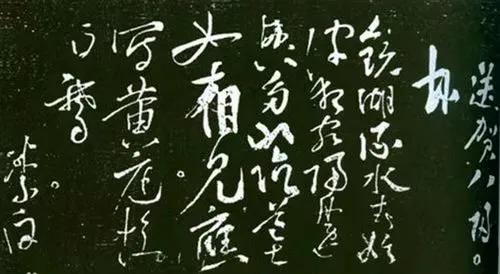 送賀八歸
越
鏡湖流水春始
波狂客歸舟逸
興多山陰道士
如相見。應
寫黃庭換
白鵝。
白